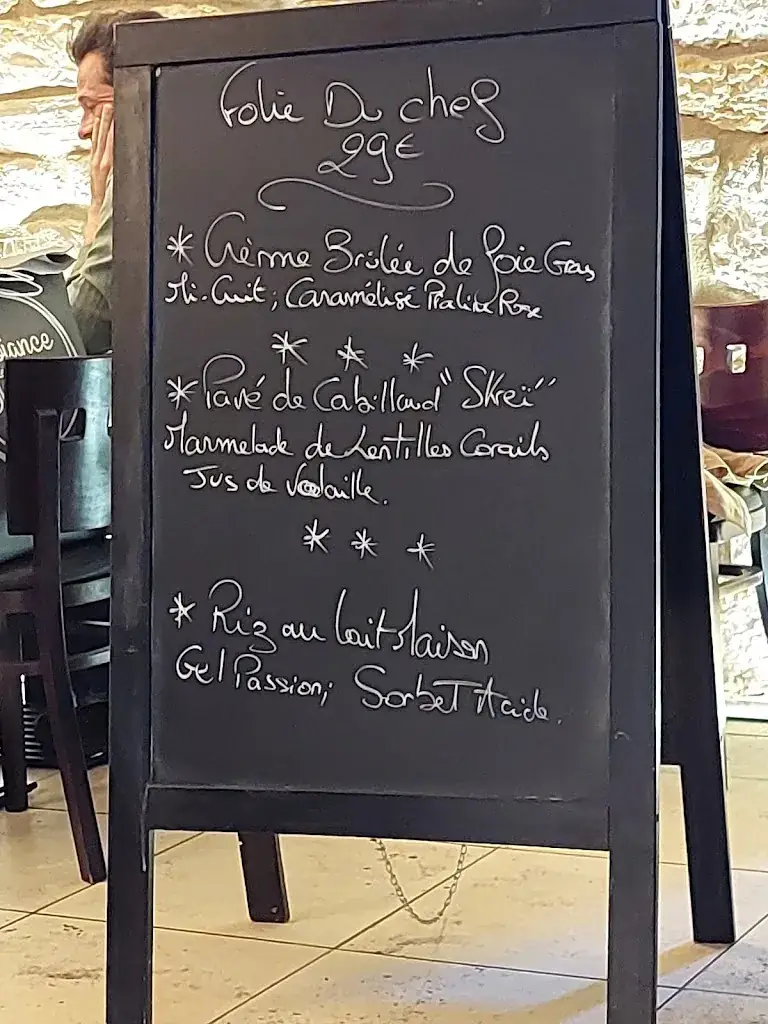 Folie Du chef
29€
* Crème Brûlée de foie Gras
Mi-Cuit ; Caramélisé Praline Rose
* * *
* Pavé de Cabillaud "Skreï"
Marmelade de Lentilles Corails
Jus de Volaille.
* * *
* Riz au lait Maison
Gel Passion ; Sorbet Acide.